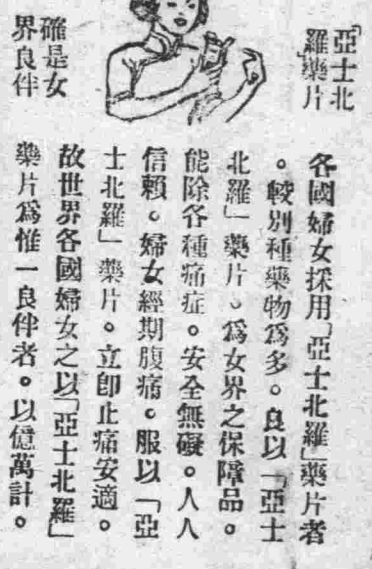 「亞士北
羅藥片
確是女
界良伴
各國婦女採用「亞士北羅」藥片者
。較別種藥物爲多。良以「亞士
北羅」藥片。爲女界之保障品。
能除各種痛症。安全無礙。人人
信賴。婦女經期腹痛。服以「亞
士北羅」藥片。立卽止痛安適。
故世界各國婦女之以「亞士北羅」
藥片爲惟一良伴者。以億萬計。